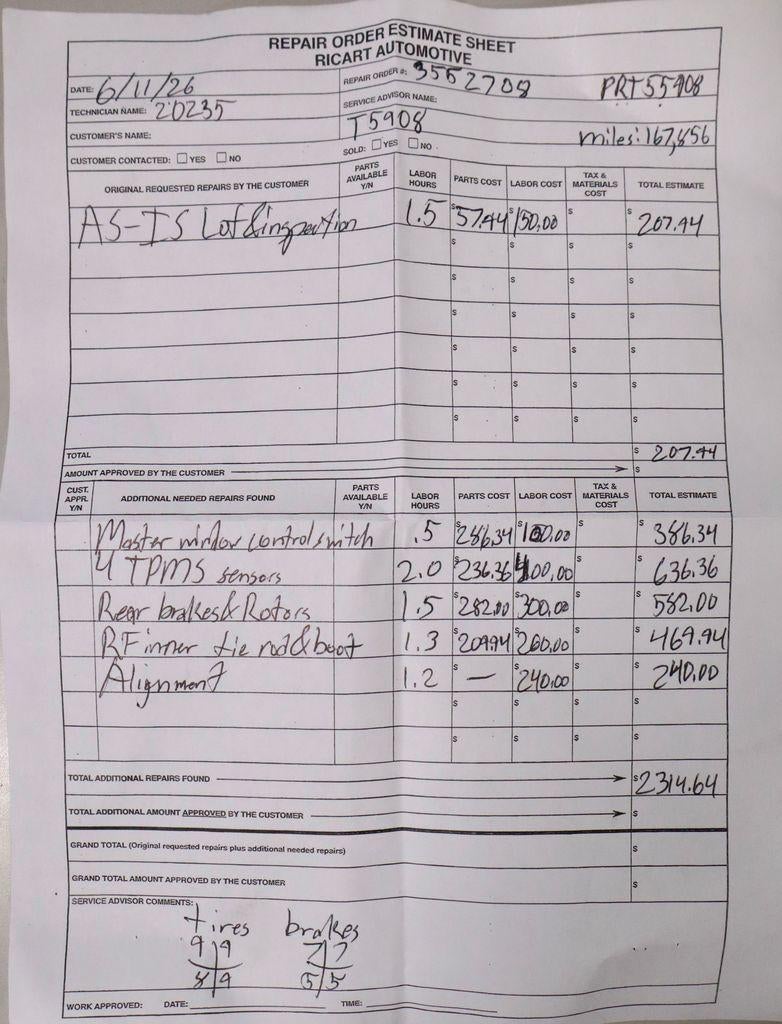 REPAIR ORDER ESTIMATE SHEET
RICART AUTOMOTIVE
DATE: 6/11/26 REPAIR ORDER #: 3552708 PRT55908
TECHNICIAN NAME: 20235 SERVICE ADVISOR NAME:
CUSTOMER'S NAME: T5908 miles: 167,856
CUSTOMER CONTACTED: YES NO SOLD: YES NO
ORIGINAL REQUESTED REPAIRS BY THE CUSTOMER PARTS AVAILABLE Y/N LABOR HOURS PARTS COST LABOR COST TAX & MATERIALS COST TOTAL ESTIMATE
AS-IS Lof & inspection 1.5 $57.44 $150.00 $ $207.44
$ $ $ $
$ $ $ $
$ $ $ $
$ $ $ $
$ $ $ $
$ $ $ $
TOTAL $207.44
AMOUNT APPROVED BY THE CUSTOMER $
CUST. APPR. Y/N ADDITIONAL NEEDED REPAIRS FOUND PARTS AVAILABLE Y/N LABOR HOURS PARTS COST LABOR COST TAX & MATERIALS COST TOTAL ESTIMATE
Master window control switch .5 $286.34 $100.00 $ $386.34
4 TPMS sensors 2.0 $236.36 $400.00 $ $636.36
Rear brakes & Rotors 1.5 $282.00 $300.00 $ $582.00
RF inner tie rod & boot 1.3 $209.94 $260.00 $ $469.94
Alignment 1.2 $ — $240.00 $ $240.00
$ $ $ $
$ $ $ $
TOTAL ADDITIONAL REPAIRS FOUND $2314.64
TOTAL ADDITIONAL AMOUNT APPROVED BY THE CUSTOMER $
GRAND TOTAL (Original requested repairs plus additional needed repairs) $
GRAND TOTAL AMOUNT APPROVED BY THE CUSTOMER $
SERVICE ADVISOR COMMENTS:
tires brakes
9 9 7 7
8 9 5 5
WORK APPROVED: DATE: TIME: